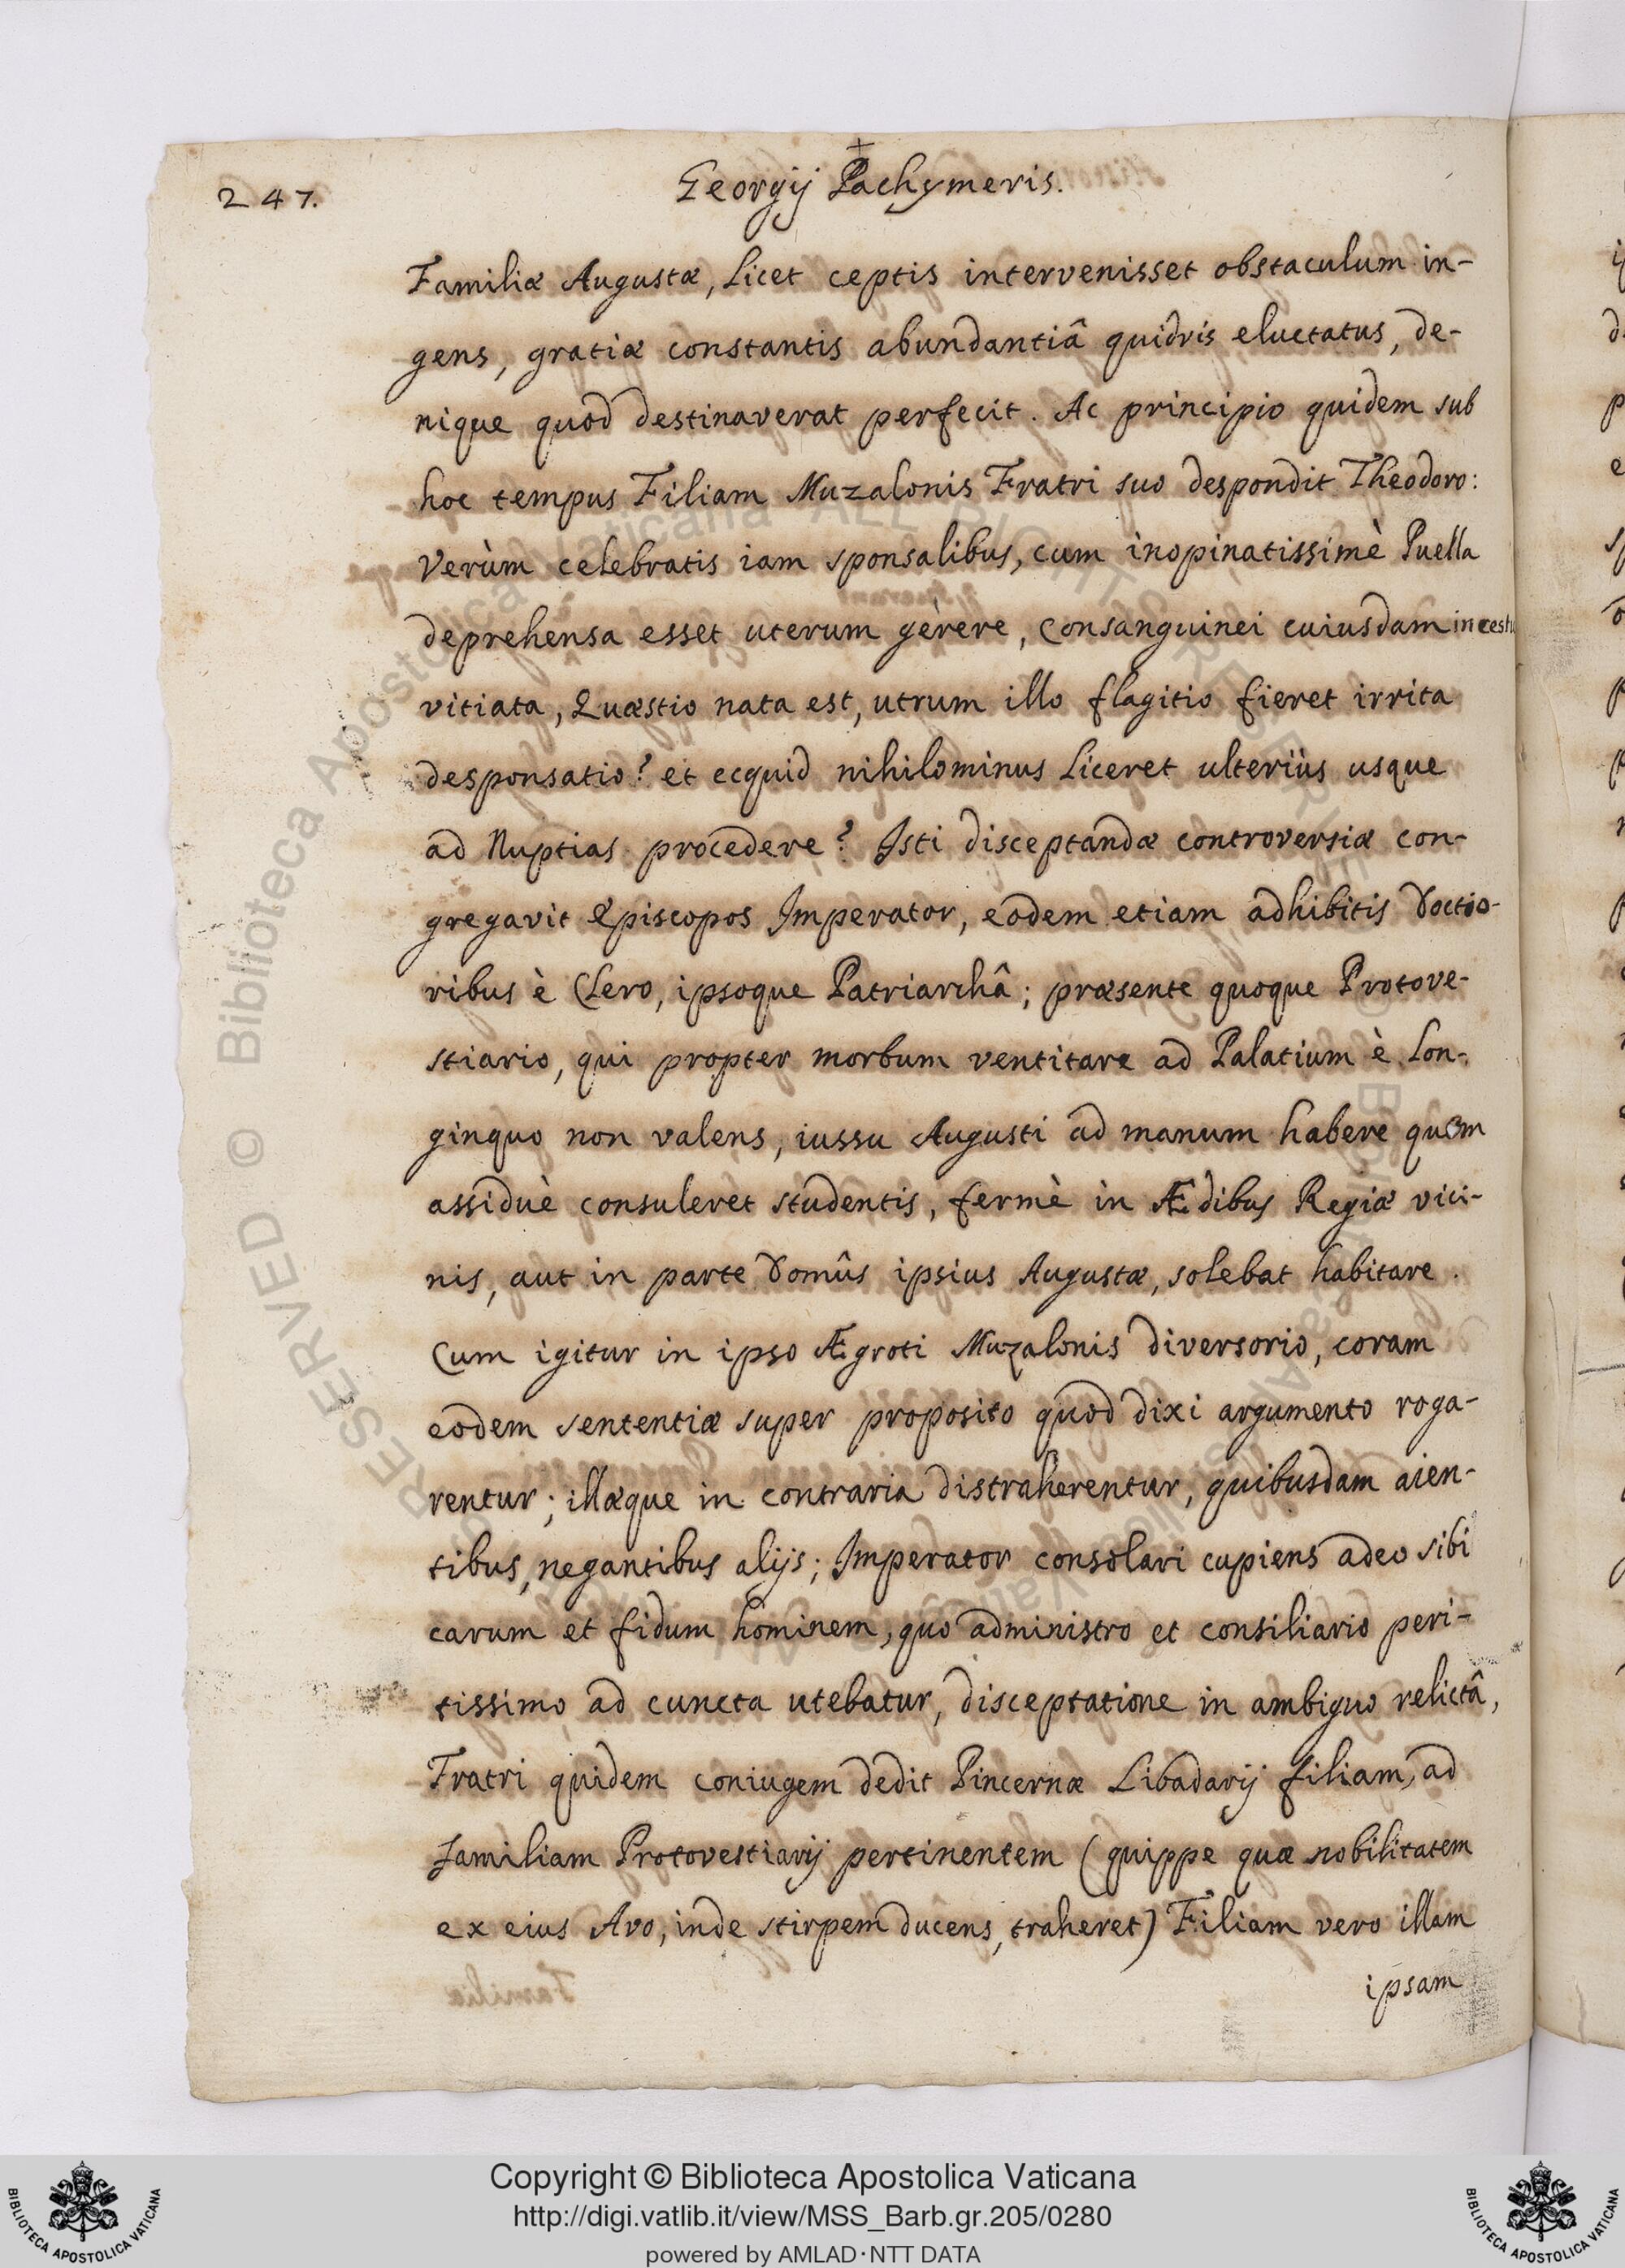 247.
Georgij Pachymeris.
Familiæ Augustæ, Licet ceptis intervenisset obstaculum in-
gens, gratiæ constantis abundantiâ quidvis eluctatus, de-
nique quod destinaverat perfecit. Ac principio quidem sub
hoc tempus Filiam Muzalonis Fratri suo despondit Theodoro:
Verùm celebratis iam sponsalibus, cum inopinatissimè Puella
deprehensa esset uterum gèrere, Consanguinei cuiusdam incestu
vitiata, Quæstio nata est, utrum illo flagitio fieret irrita
desponsatio? et ecquid nihilominus Liceret ulteriùs usque
ad Nuptias procedere? Isti disceptandæ controversiæ con-
gregavit Episcopos Imperator, eodem etiam adhibitis Doctio-
ribus è Clero, ipsoque Patriarchâ; præsente quoque Protove-
stiario, qui propter morbum ventitare ad Palatium è Lon-
ginquo non valens, iussu Augusti ad manum habere quem
assiduè consuleret studentis, fermè in Ædibus Regiæ vici-
nis, aut in parte Domûs ipsius Augustæ, solebat habitare.
Cum igitur in ipso Ægroti Muzalonis diversorio, coram
eodem sententiæ super proposito quod dixi argumento roga-
rentur; illæque in contraria distraherentur, quibusdam aien-
tibus, negantibus alijs; Imperator consolari cupiens adeo sibi
carum et fidum hominem, quo administro et consiliario peri-
tissimo ad cuncta utebatur, disceptatione in ambiguo relictâ,
Fratri quidem coniugem dedit Pincernæ Libadarij filiam, ad
familiam Protovestiarij pertinentem (quippe quæ nobilitatem
ex eius Avo, inde stirpem ducens, traheret) Filiam vero illam
ipsam
Copyright © Biblioteca Apostolica Vaticana
http://digi.vatlib.it/view/MSS_Barb.gr.205/0280
powered by AMLAD·NTT DATA